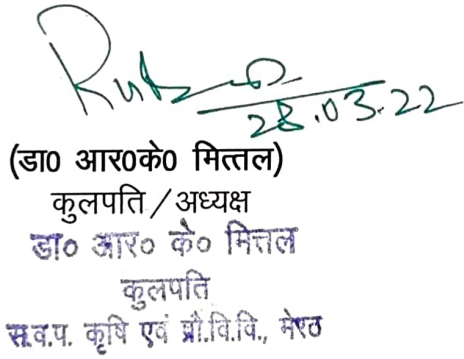 28.03.22
(डा0 आर0के0 मित्तल)
कुलपति / अध्यक्ष
डा० आर० के० मित्तल
कुलपति
स.व.प. कृषि एवं प्रौ.वि.वि., मेरठ